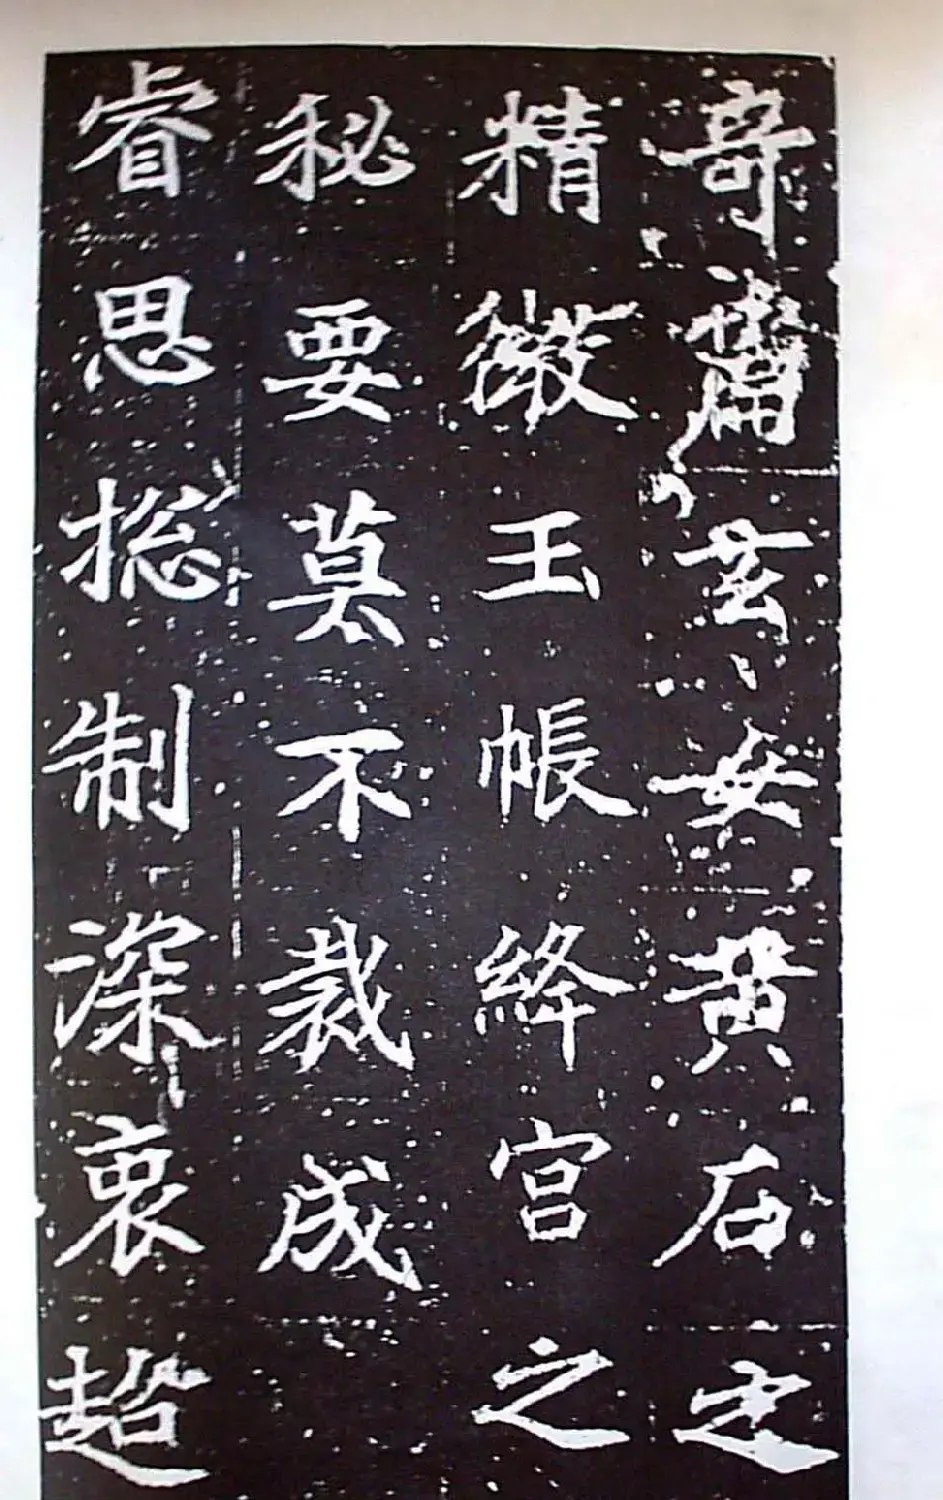 奇篇玄女黄石之
精微玉帳絳宫之
秘要莫不裁成
睿思捴制深衷超